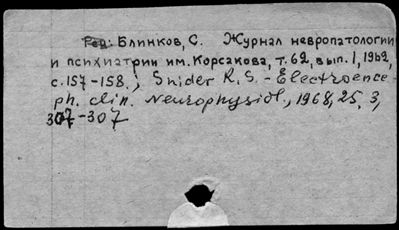 Рец: Блинков, С. Журнал невропатологии
и психиатрии им. Корсакова, т. 62, вып. 1, 1962,
с. 157-158.; Snider R. S. - Electroence-
ph. clin. Neurophysiol., 1968, 25, 3,
307-307